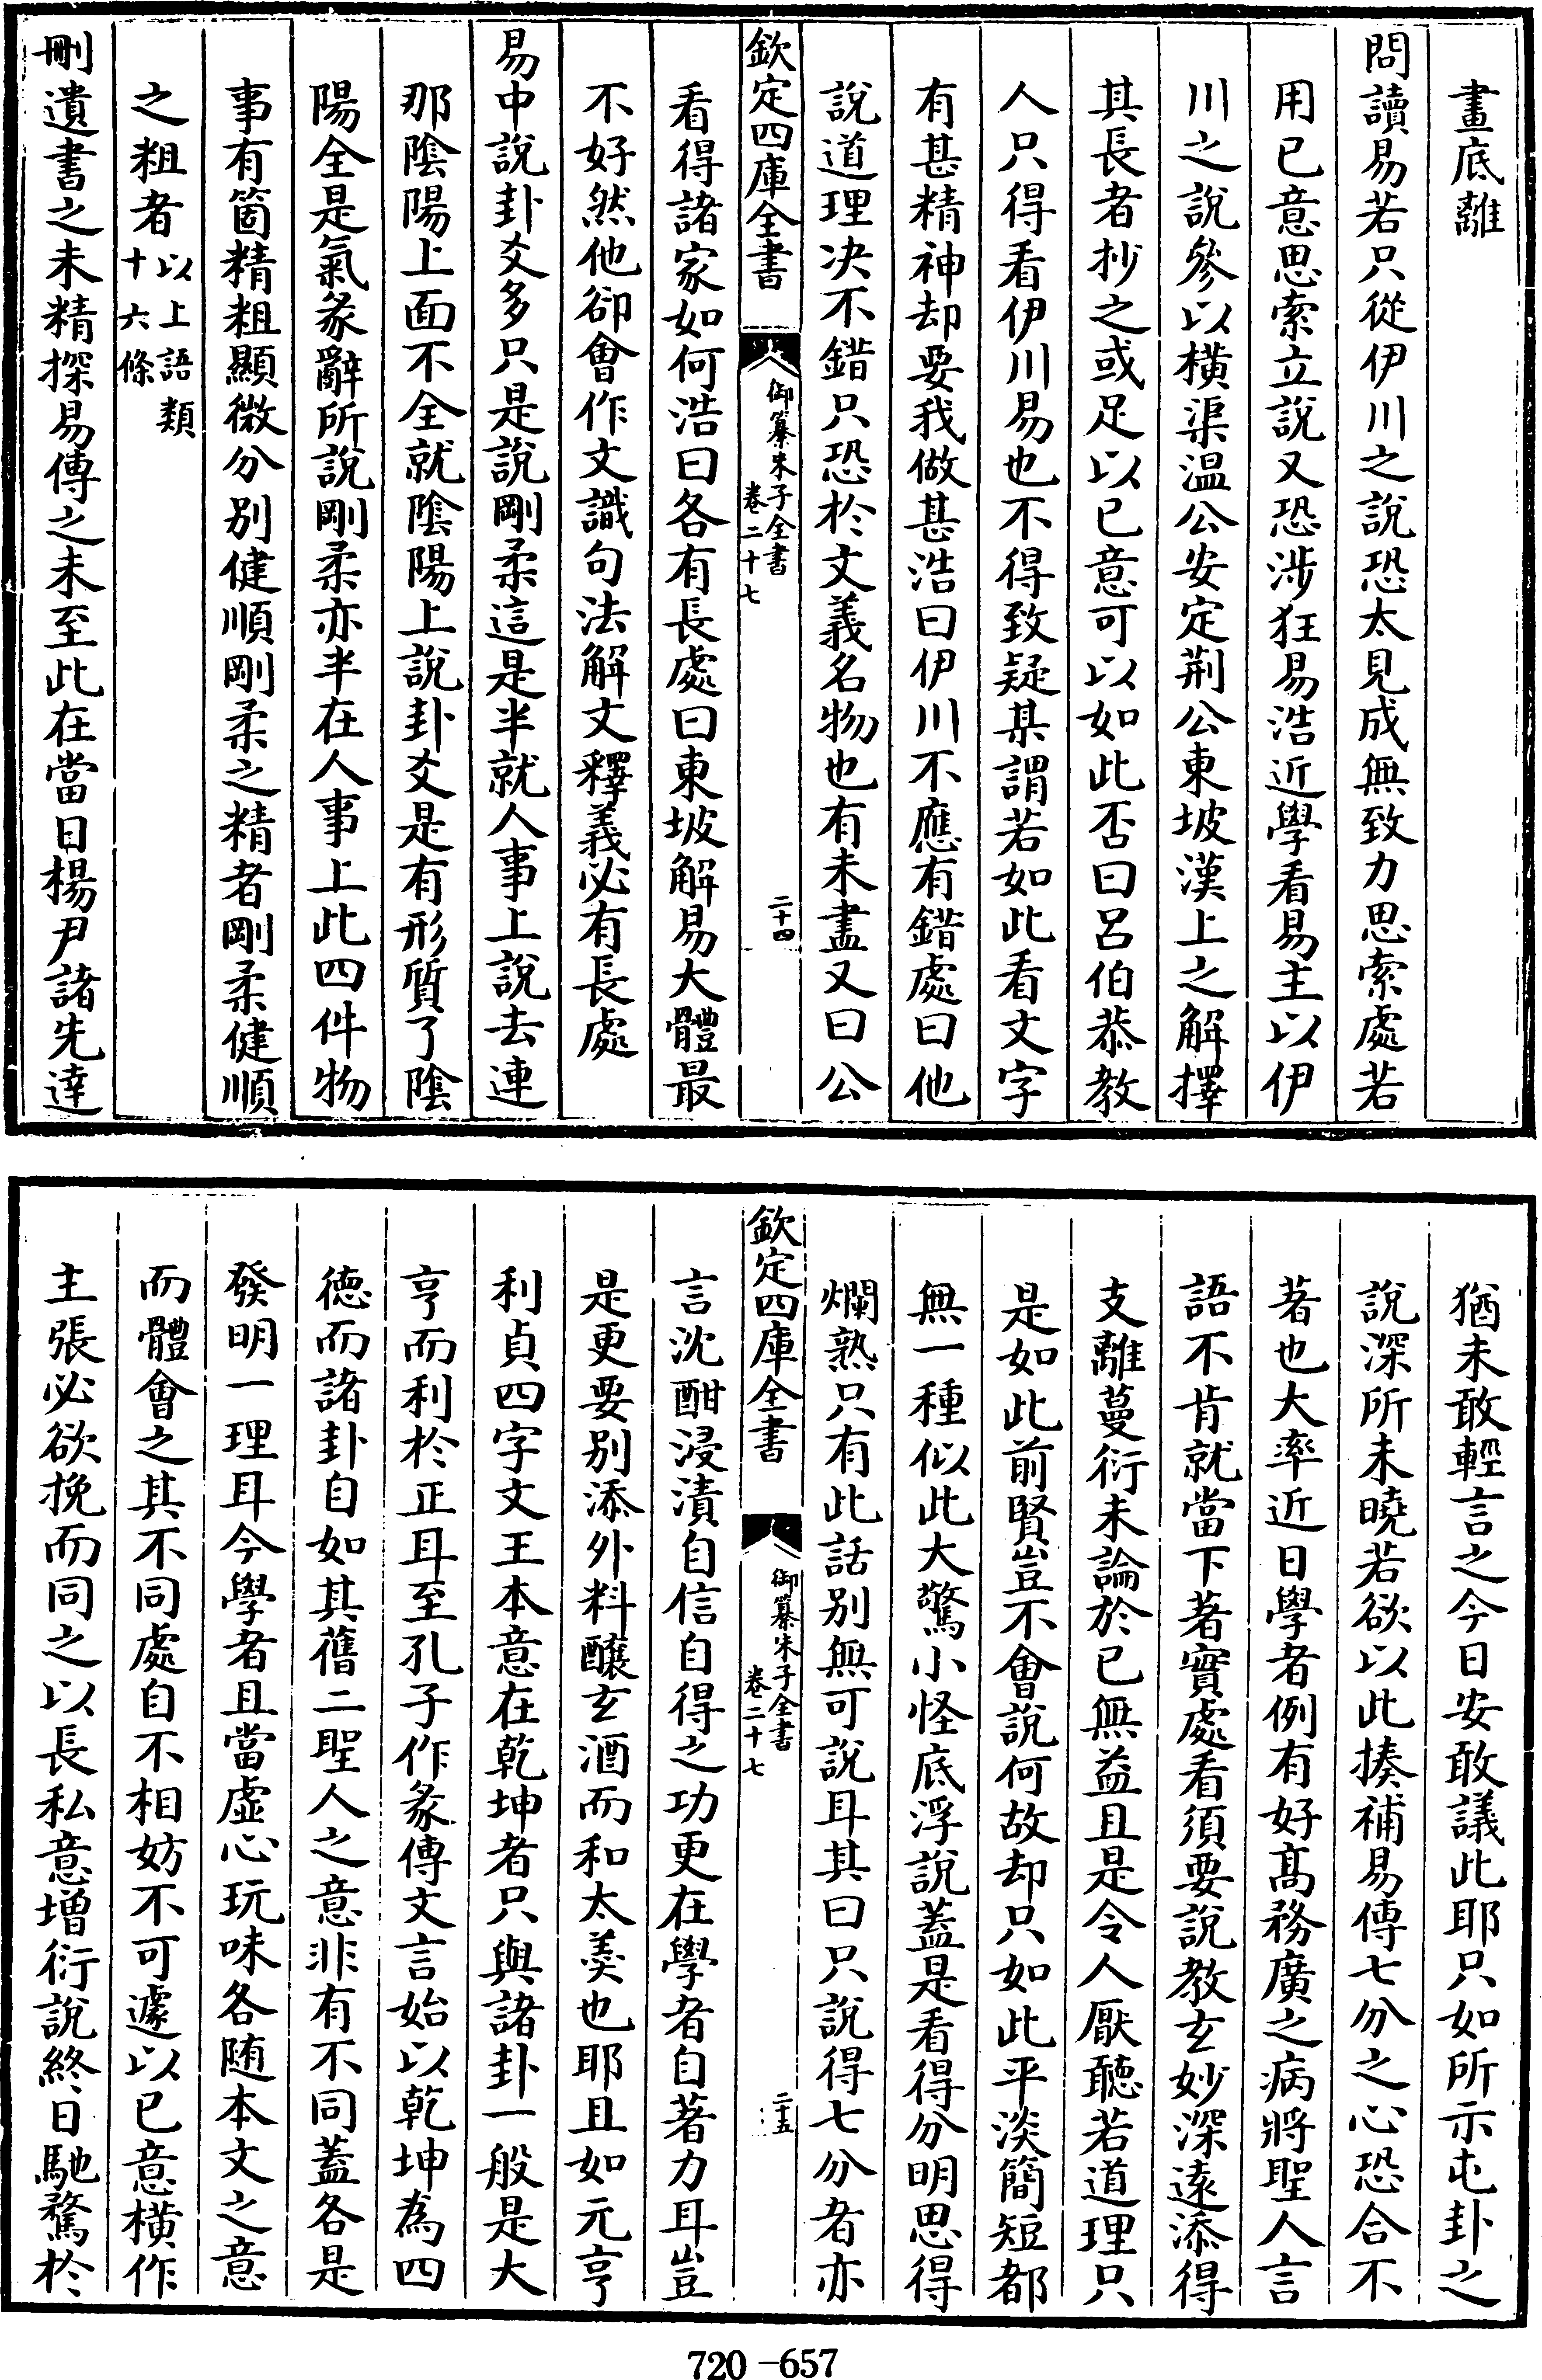 畫底離
問讀易若只從伊川之說恐太見成無致力思索處若
用已意思索立說又恐涉狂易浩近學看易主以伊
川之說參以橫渠温公安定荆公東坡漢上之解擇
其長者抄之或足以已意可以如此否曰呂伯恭教
人只得看伊川易也不得致疑某謂若如此看文字
有甚精神却要我做甚浩曰伊川不應有錯處曰他
說道理决不錯只恐於文義名物也有未盡又曰公
欽定四庫全書
御纂朱子全書
卷二十七
二十四
看得諸家如何浩曰各有長處曰東坡解易大體最
不好然他卻會作文識句法解文釋義必有長處
易中說卦爻多只是說剛柔這是半就人事上說去連
那陰陽上面不全就陰陽上說卦爻是有形質了陰
陽全是氣彖辭所說剛柔亦半在人事上此四件物
事有箇精粗顯微分别健順剛柔之精者剛柔健順
之粗者以上語類十六條
刪遺書之未精探易傳之未至此在當日楊尹諸先達
猶未敢輕言之今日安敢議此耶只如所示屯卦之
說深所未曉若欲以此揍補易傳七分之心恐合不
著也大率近日學者例有好髙務廣之病將聖人言
語不肯就當下著實處看須要說教玄妙深遠添得
支離蔓衍未論於已無益且是令人厭聽若道理只
是如此前賢豈不會說何故却只如此平淡簡短都
無一種似此大驚小怪底浮說蓋是看得分明思得
爛熟只有此話别無可說耳其曰只說得七分者亦
欽定四庫全書
御纂朱子全書
卷二十七
二十五
言沈酣浸漬自信自得之功更在學者自著力耳豈
是更要别添外料釀玄酒而和太羮也耶且如元亨
利貞四字文王本意在乾坤者只與諸卦一般是大
亨而利於正耳至孔子作彖傳文言始以乾坤為四
德而諸卦自如其舊二聖人之意非有不同蓋各是
發明一理耳今學者且當虛心玩味各随本文之意
而體會之其不同處自不相妨不可遽以已意橫作
主張必欲挽而同之以長私意增衍說終日馳騖於
720-657